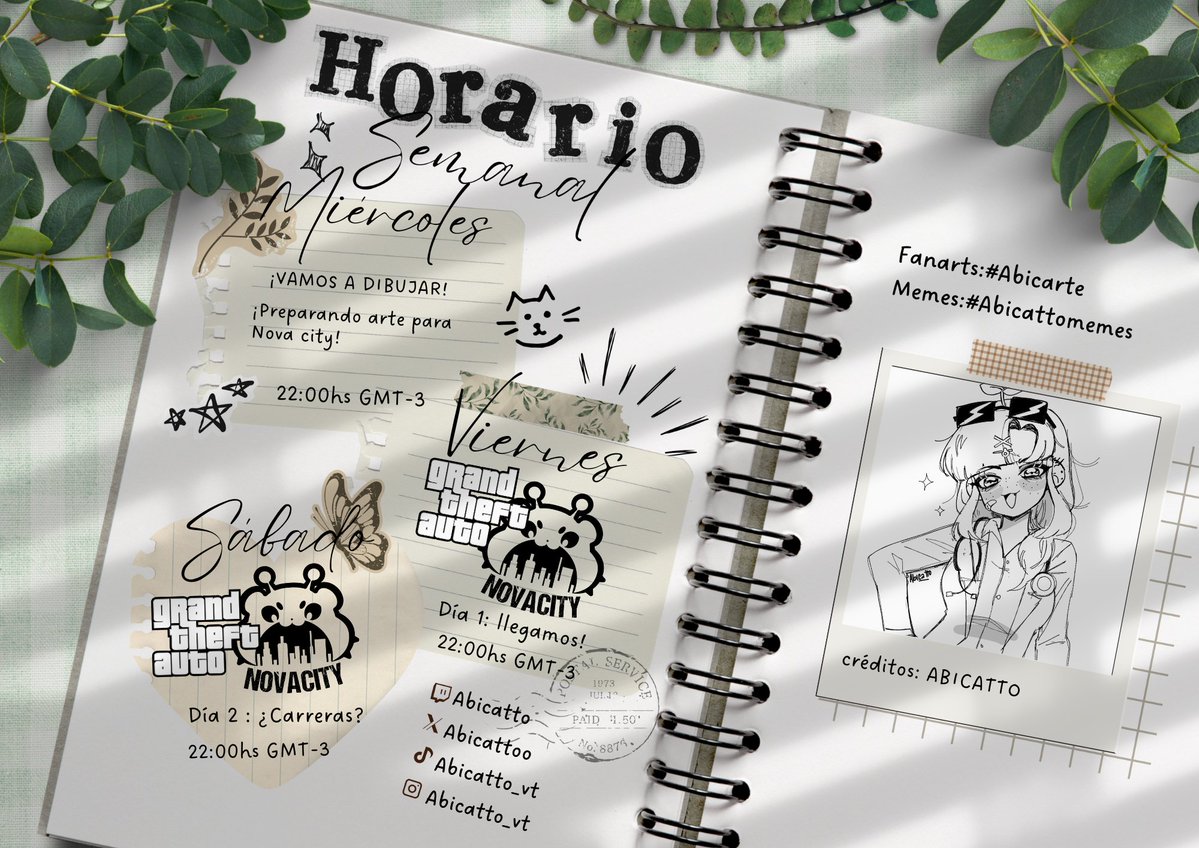 Horario
Semanal
Miércoles
¡VAMOS A DIBUJAR!
¡Preparando arte para
Nova city!
22:00hs GMT-3
Viernes
grand
theft
auto
NOVACITY
Día 1: llegamos!
22:00hs GMT-3
Sábado
grand
theft
auto
NOVACITY
Día 2 : ¿Carreras?
22:00hs GMT-3
Abicatto
Abicattoo
Abicatto_vt
Abicatto_vt
POSTAL SERVICE
1973
PAID
Fanarts:#Abicarte
Memes:#Abicattomemes
créditos: ABICATTO